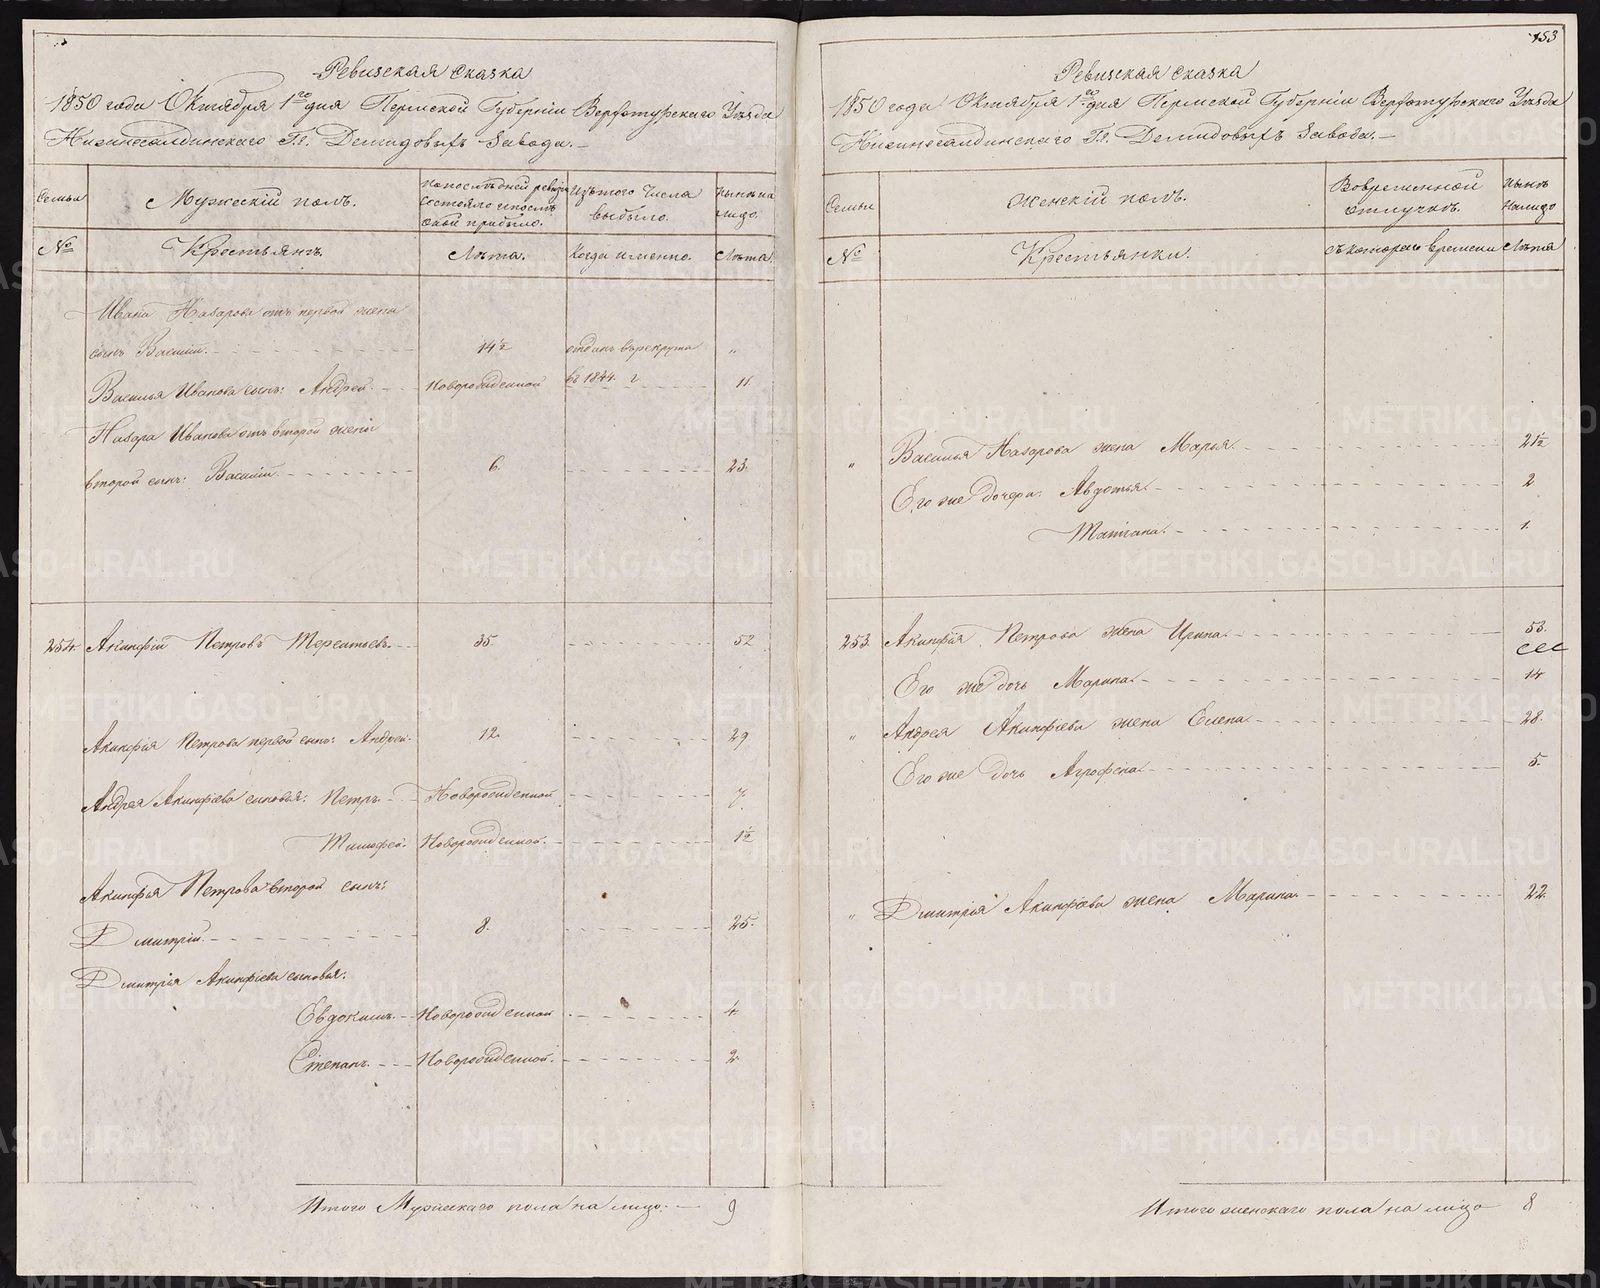 Ревизская сказка
1850 года Октября 1го дня Пермской Губернiи Верхотурскаго Уѣзда
Нижнесалдинскаго Гг. Демидовыхъ Завода.
Семьи
Мужескiй полъ.
По послѣдней ревизiи состояло и послѣ оной прибыло.
Изъ того числа выбыло.
Нынѣ на лицо.
№
Крестьянъ.
Лѣта.
Когда именно.
Лѣта.
Ивана Назарова отъ первой жены
сынъ Василiй. 14½ отданъ въ рекруты „
въ 1844. г
Василья Иванова сынъ: Андрей. Новорожденной 11.
Назара Иванова отъ второй жены
второй сынъ: Василiй. 6. 23.
254. Акинфiй Петровъ Терентьевъ. 35. 52
Акинфiя Петрова первой сынъ: Андрей. 12. 29
Андрея Акинфiева сыновья: Петръ. Новорожденной 7.
Тимофей. Новорожденной. 1½
Акинфiя Петрова второй сынъ:
Дмитрiй. 8. 25.
Дмитрiя Акинфiева сыновья:
Евдокимъ. Новорожденной 4.
Степанъ. Новорожденной. 2.
Итого Мужескаго пола на лицо. 9
153
Ревизская сказка
1850 года Октября 1го дня Пермской Губернiи Верхотурскаго Уѣзда
Нижнесалдинскаго Гг. Демидовыхъ Завода.
Семьи
Женскiй полъ.
Во временной отлучкѣ.
Нынѣ на лицо
№
Крестьянки.
Съ котораго времени
Лѣта
„ Василья Назарова жена Марья. 21½
Его же дочери: Авдотья. 2
Татiана. 1.
253. Акинфiя Петрова жена Ирина. 53.
Его же дочь Марина. 14
„ Андрея Акинфiева жена Елена. 28.
Его же дочь Агрофена. 5.
„ Дмитрiя Акинфiева жена Марина. 22.
Итого женскаго пола на лицо 8
METRIKI.GASO-URAL.RU